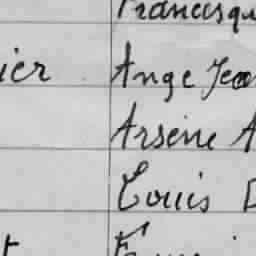 Francisqu
ier Ange Jea
Arsène A
Louis D